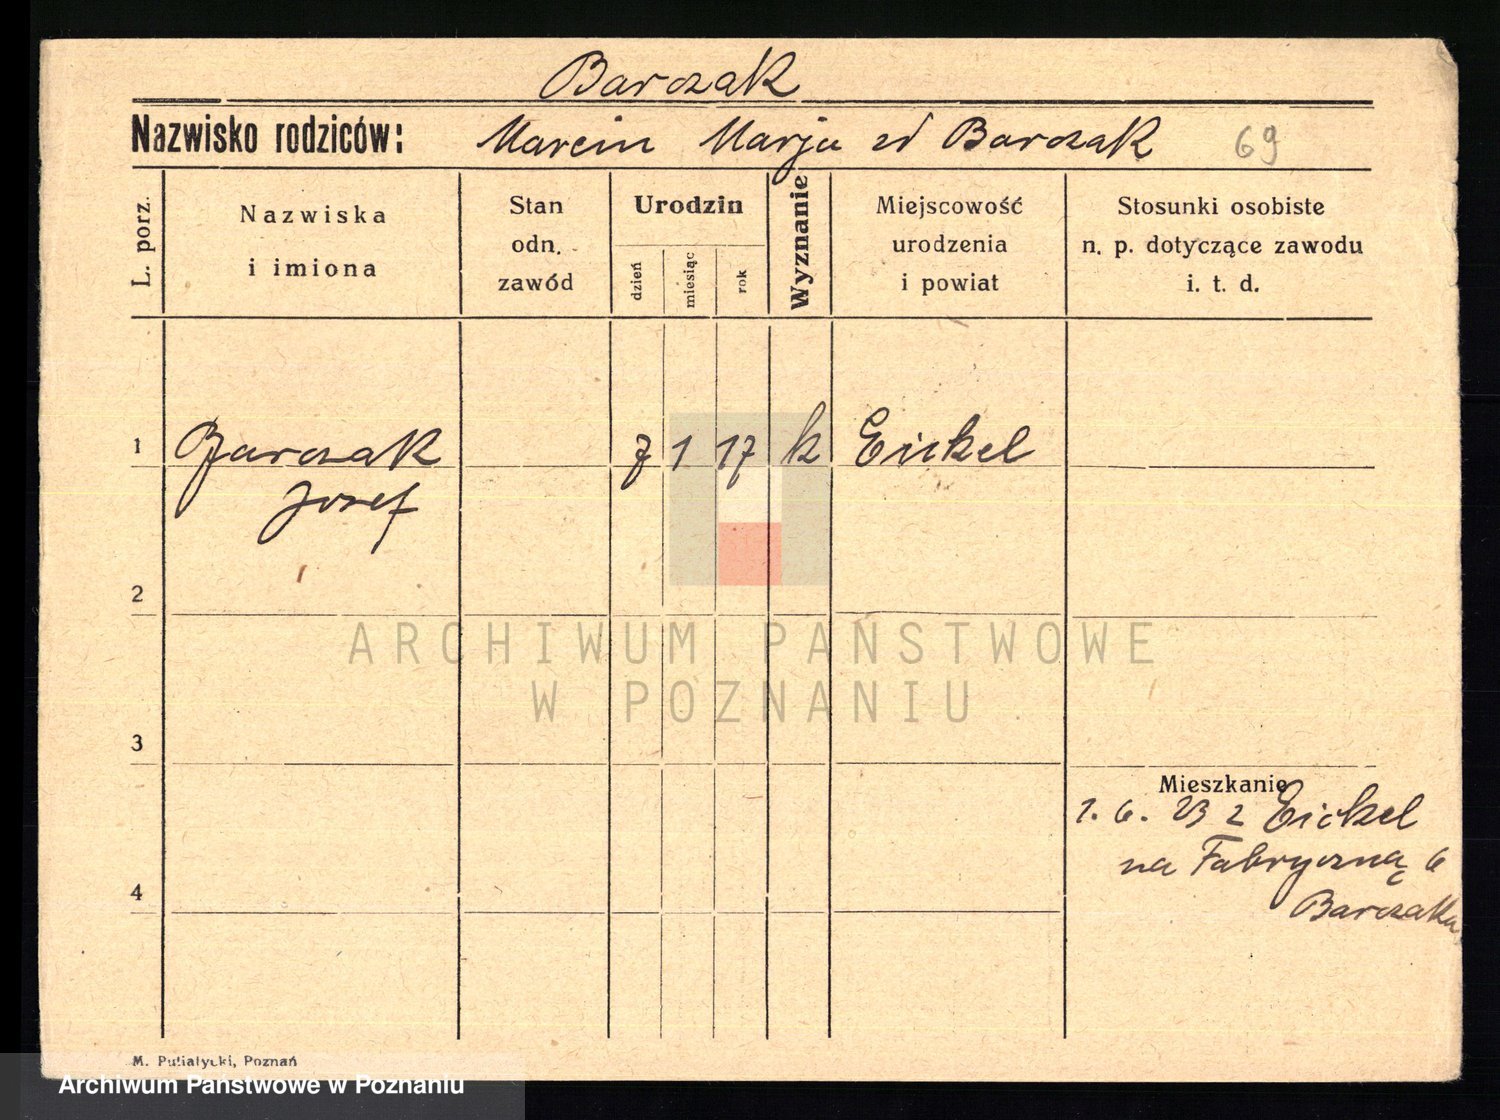 Barczak
Nazwisko rodziców: Marcin Marja zd Barczak 69
L. porz.
Nazwiska
i imiona
Stan
odn.
zawód
Urodzin
dzień
miesiąc
rok
Wyznanie
Miejscowość
urodzenia
i powiat
Stosunki osobiste
n. p. dotyczące zawodu
i. t. d.
1 Barczak 7 1 17 k Eickel
Josef
2
ARCHIWUM PAŃSTWOWE
W POZNANIU
3
Mieszkanie
1. 6. 23 z Eickel
na Fabryczną 6
Barczaka
4
M. Putiatycki, Poznań
Archiwum Państwowe w Poznaniu